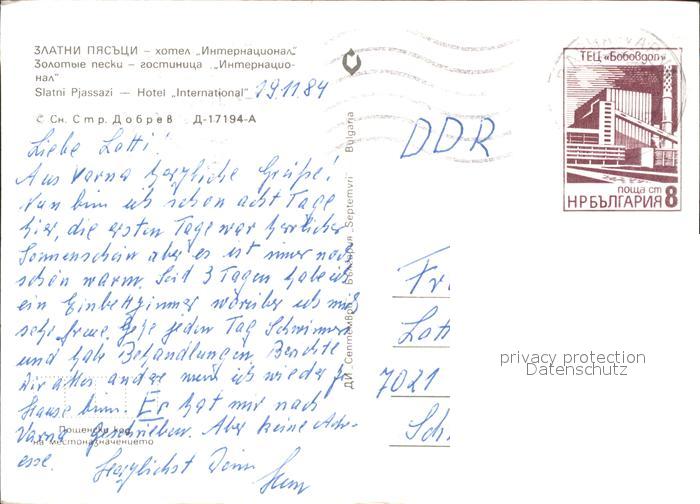 ЗЛАТНИ ПЯСЪЦИ – хотел „Интернационал"
Золотые пески – гостиница „Интернацио-
нал"
Slatni Pjassazi – Hotel „International" 19.11.84
© Сн. Стр. Добрев Д-17194-А
Liebe Lotti!
Aus Varna herzliche Grüße!
Nun bin ich schon acht Tage
hier, die ersten Tage war herrlicher
Sonnenschein aber es ist imer noch
schön warm. Seid 3 Tagen habe ich
ein Einbettzimmer worüber ich mich
sehr freue. Gehe jeden Tag Schwimmen
und habe Behandlungen. Berichte
Dir alles andere wenn ich wieder zu
Hause bin. Er hat mir nach
Varna geschrieben. Aber keine Adr-
esse. Herzlichst Deine
Пощенски код
на местоназначението
ДИ „Септември" България „Septemvri" Bulgaria
DDR
ТЕЦ «Бобовдол»
поща ст
НР БЪЛГАРИЯ 8
Fr
Lott
7021
Sch
privacy protection
Datenschutz